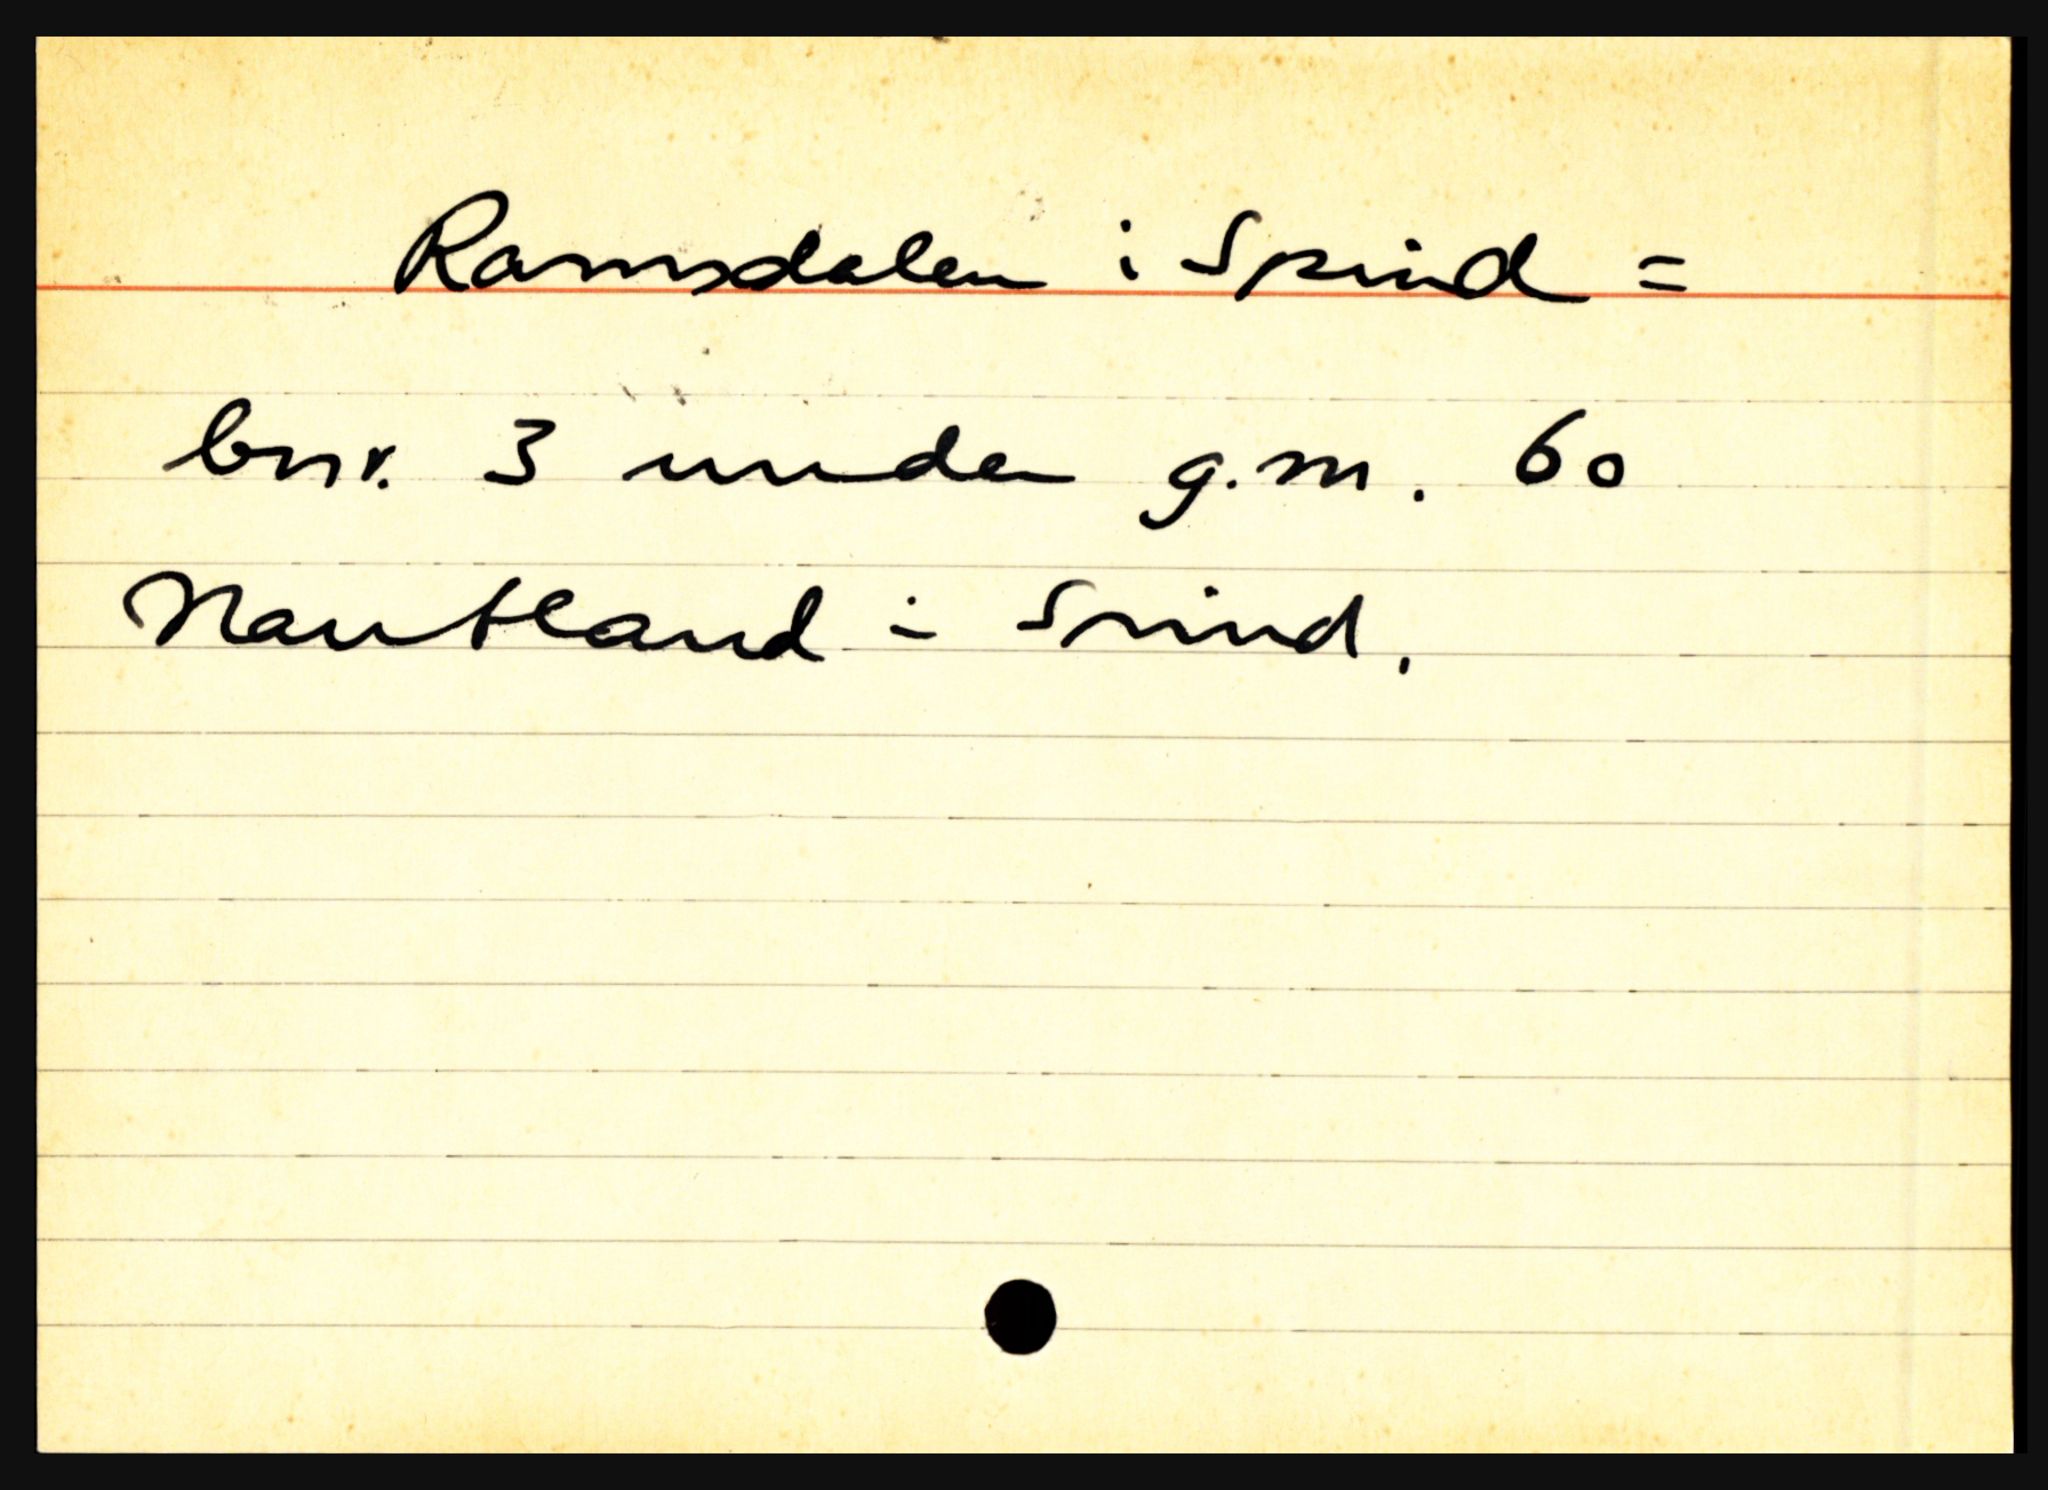 Ramsdalen i Spind =
bnr. 3 under g.nr. 60
Nautland i Spind.